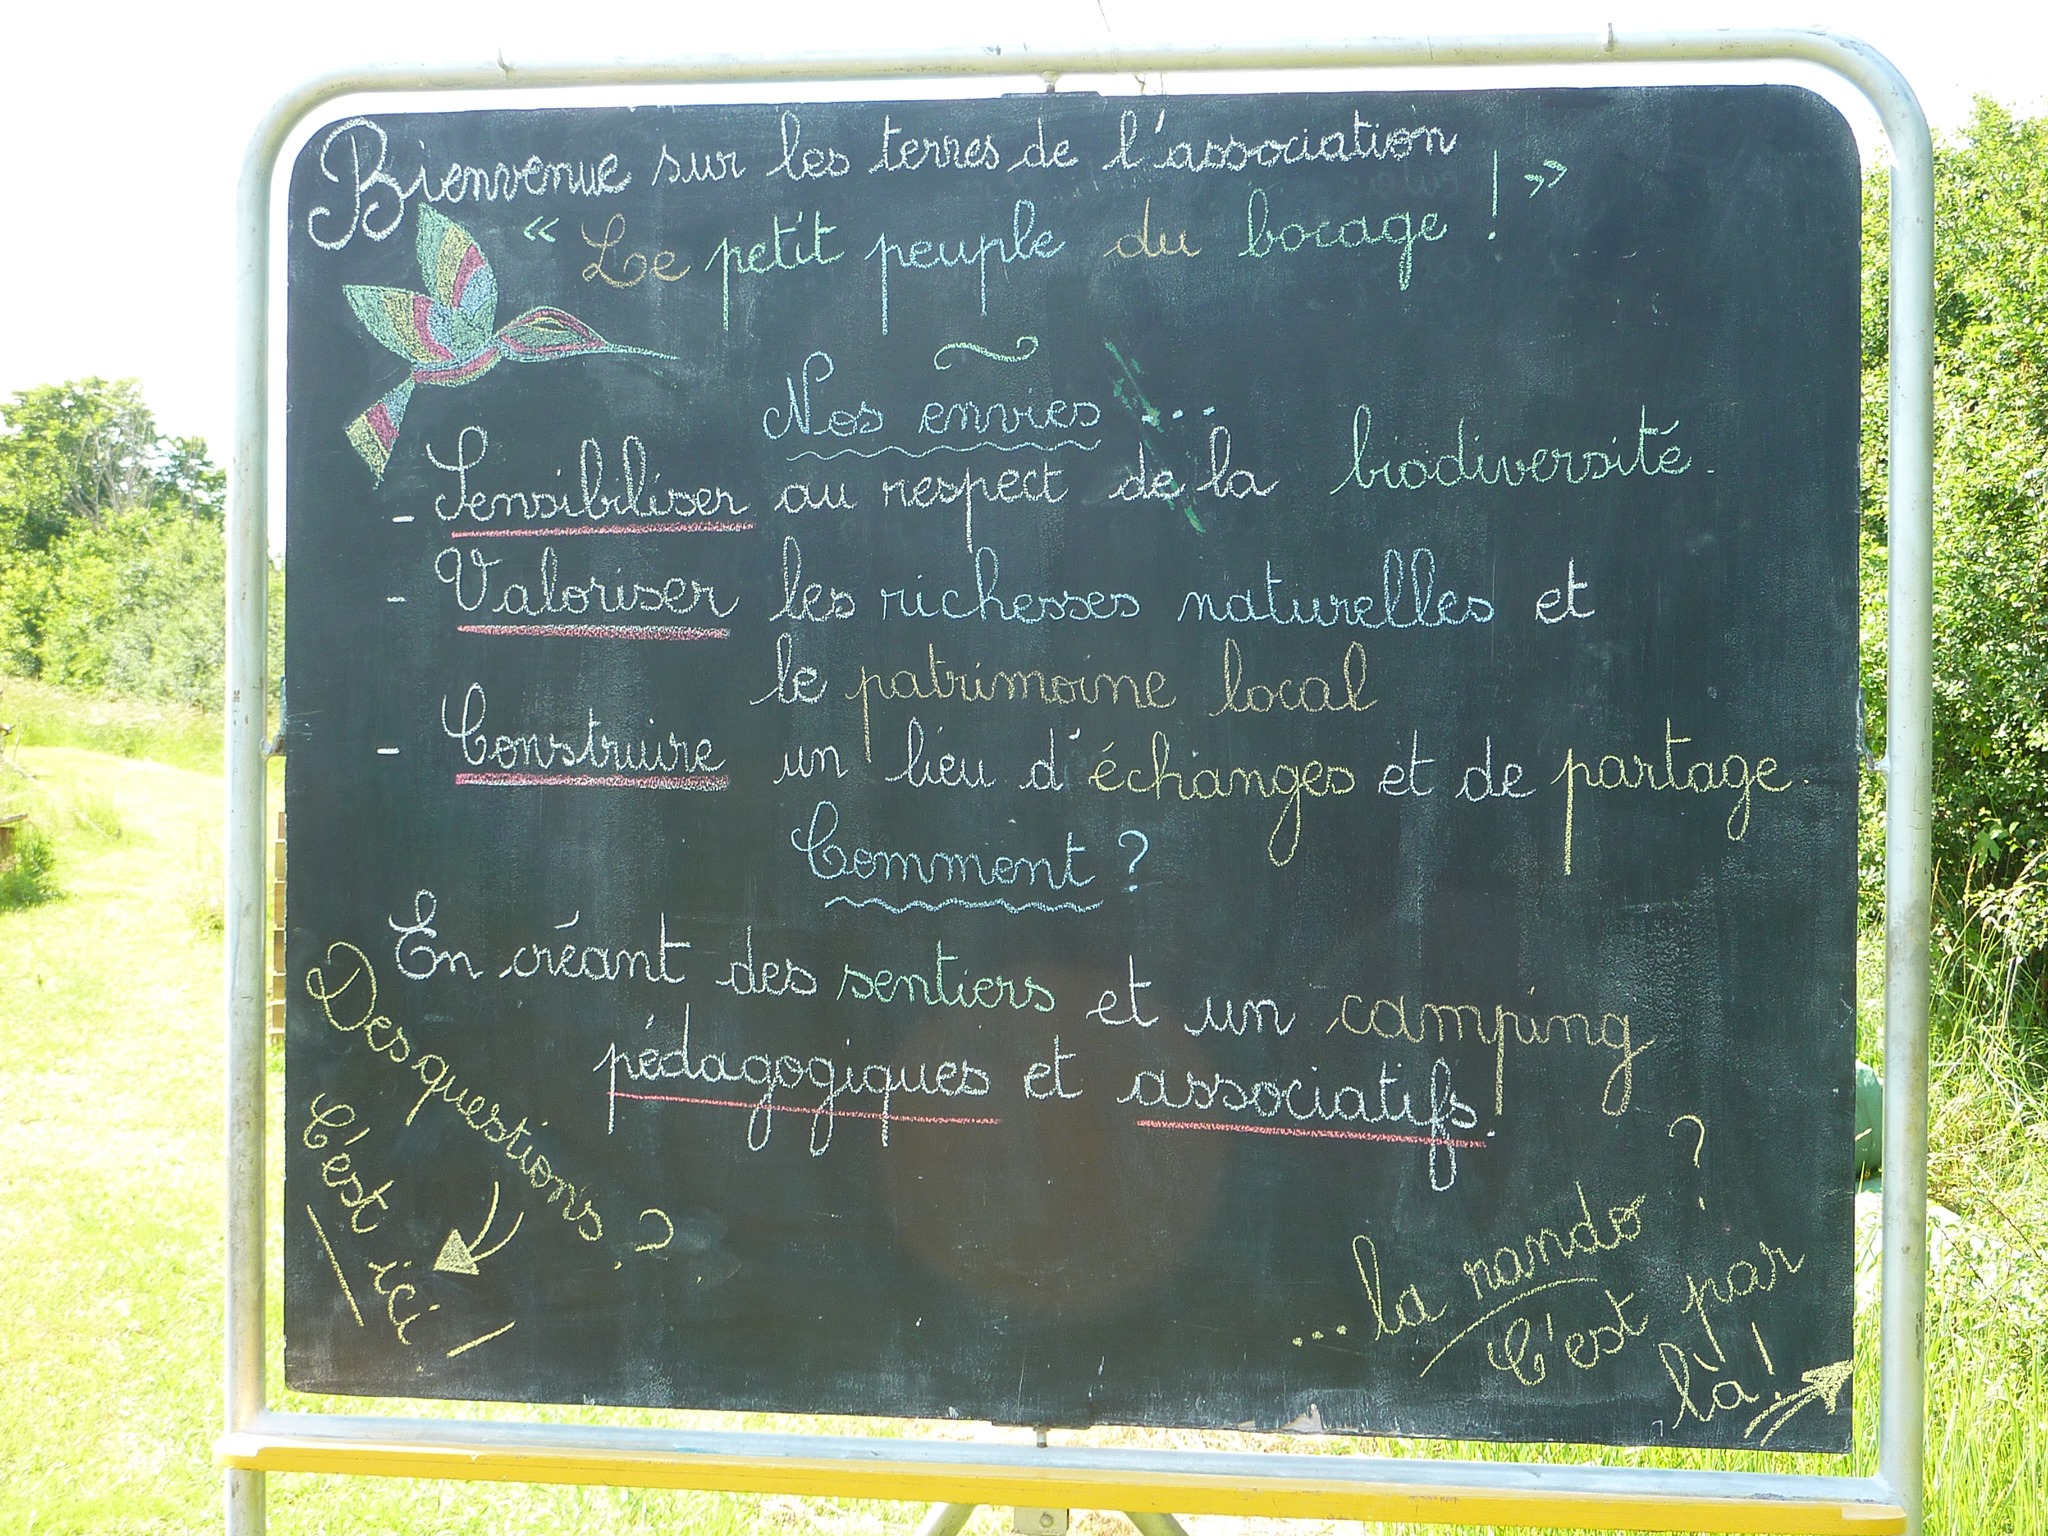 Bienvenue sur les terres de l'association
« Le petit peuple du bocage ! »
Nos envies ...
- Sensibiliser au respect de la biodiversité.
- Valoriser les richesses naturelles et
le patrimoine local
- Construire un lieu d'échanges et de partage.
Comment ?
En créant des sentiers et un camping
pédagogiques et associatifs.
Des questions ?
C'est ici !
...la rando ?
C'est par
là !